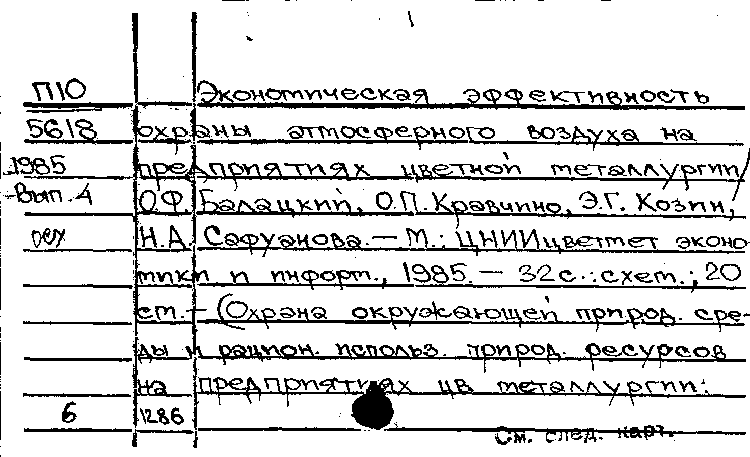 П10 Экономическая эффективность
5618 охраны атмосферного воздуха на
1985 предприятиях цветной металлургии/
Вып. 4 О.Ф. Балацкий, О.П. Кравчино, Э.Г. Козин,
Н.А. Сафуанова. — М.: ЦНИИцветмет эконо-
мики и информ., 1985. — 32 с.: схем.; 20
см. — (Охрана окружающей природ. сре-
ды и рацион. использ. природ. ресурсов
на предприятиях цв металлургии:
6 1286
См. след. карт.